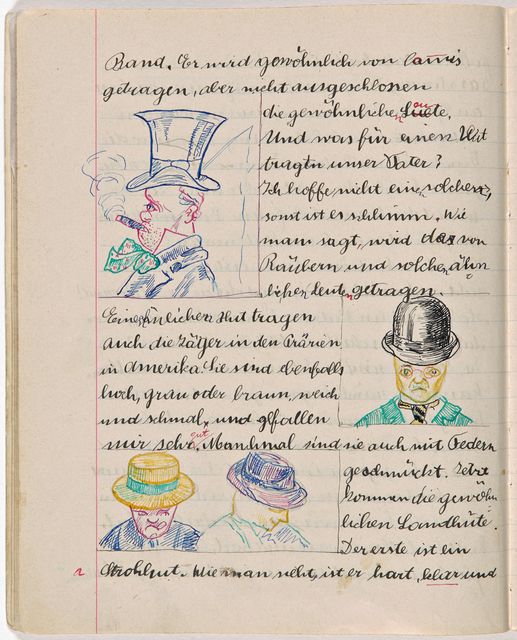 Band. Er wird gewöhnlich von
getragen, aber nicht ausgeschlossen
die gewöhnliche Leute.
Und was für einen Hut
tragtn unser Vater?
Ich hoffe, nicht ein solcher,
sonst ist es schlimm. Wie
man sagt, wird das von
Räubern und solche ähn
lichen Leuten getragen.
Eine ähnlichen Hut tragen
auch die Jäger in den Prärien
in Amerika. Sie sind ebenfalls
hoch, grau oder braun, weich
und schmal, und gefallen
mir sehr gut. Manchmal sind sie auch mit Federn
geschmückt. Jetzt
kommen die gewöhn
lichen Landhüte.
Der erste ist ein
Strohhut. Wie man sieht, ist er hart, klar und